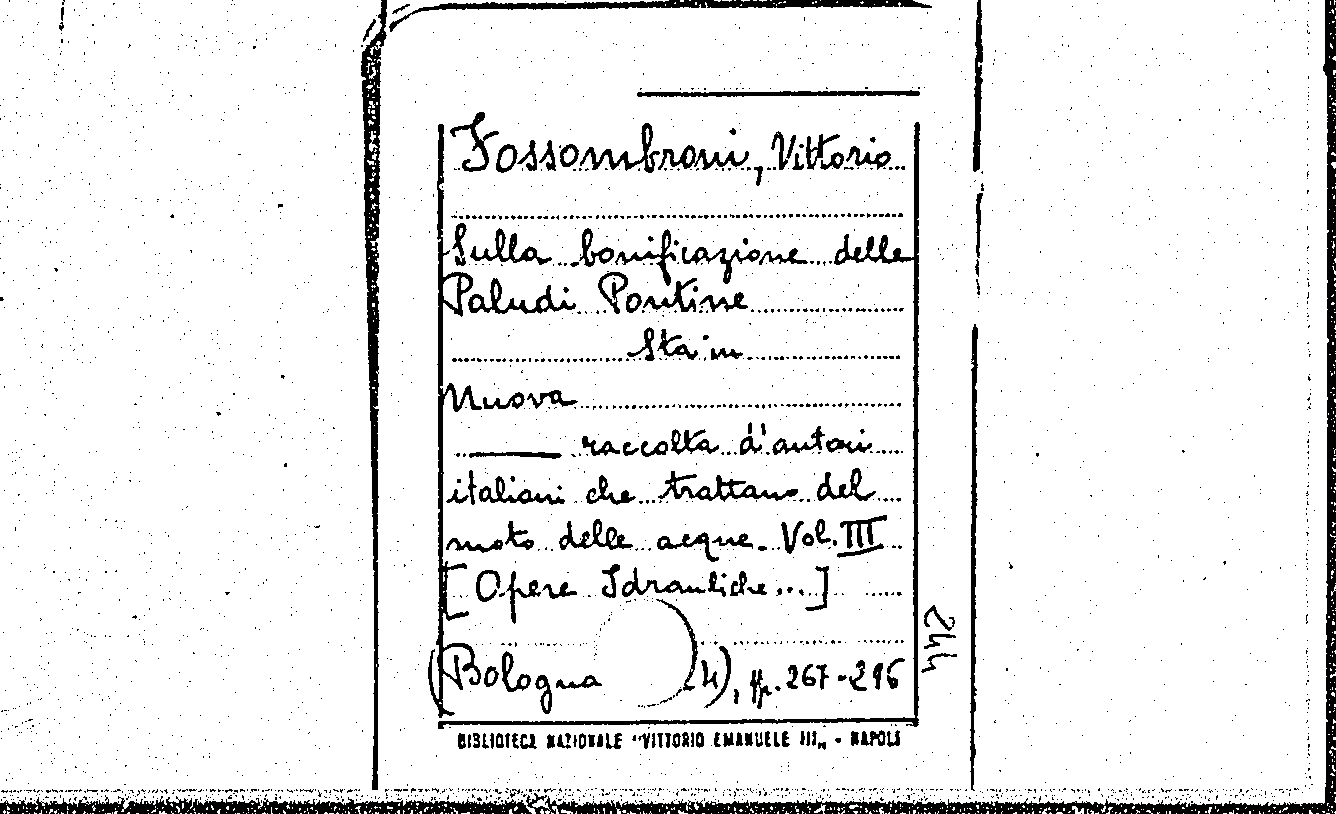 Fossombroni, Vittorio
Sulla bonificazione delle
Paludi Pontine
Sta in
Nuova
raccolta d'autori
italiani che trattano del
moto delle acque. Vol. III
[Opere Idrauliche...]
(Bologna 24), pp. 267-296
BIBLIOTECA NAZIONALE "VITTORIO EMANUELE III„ - NAPOLI
244